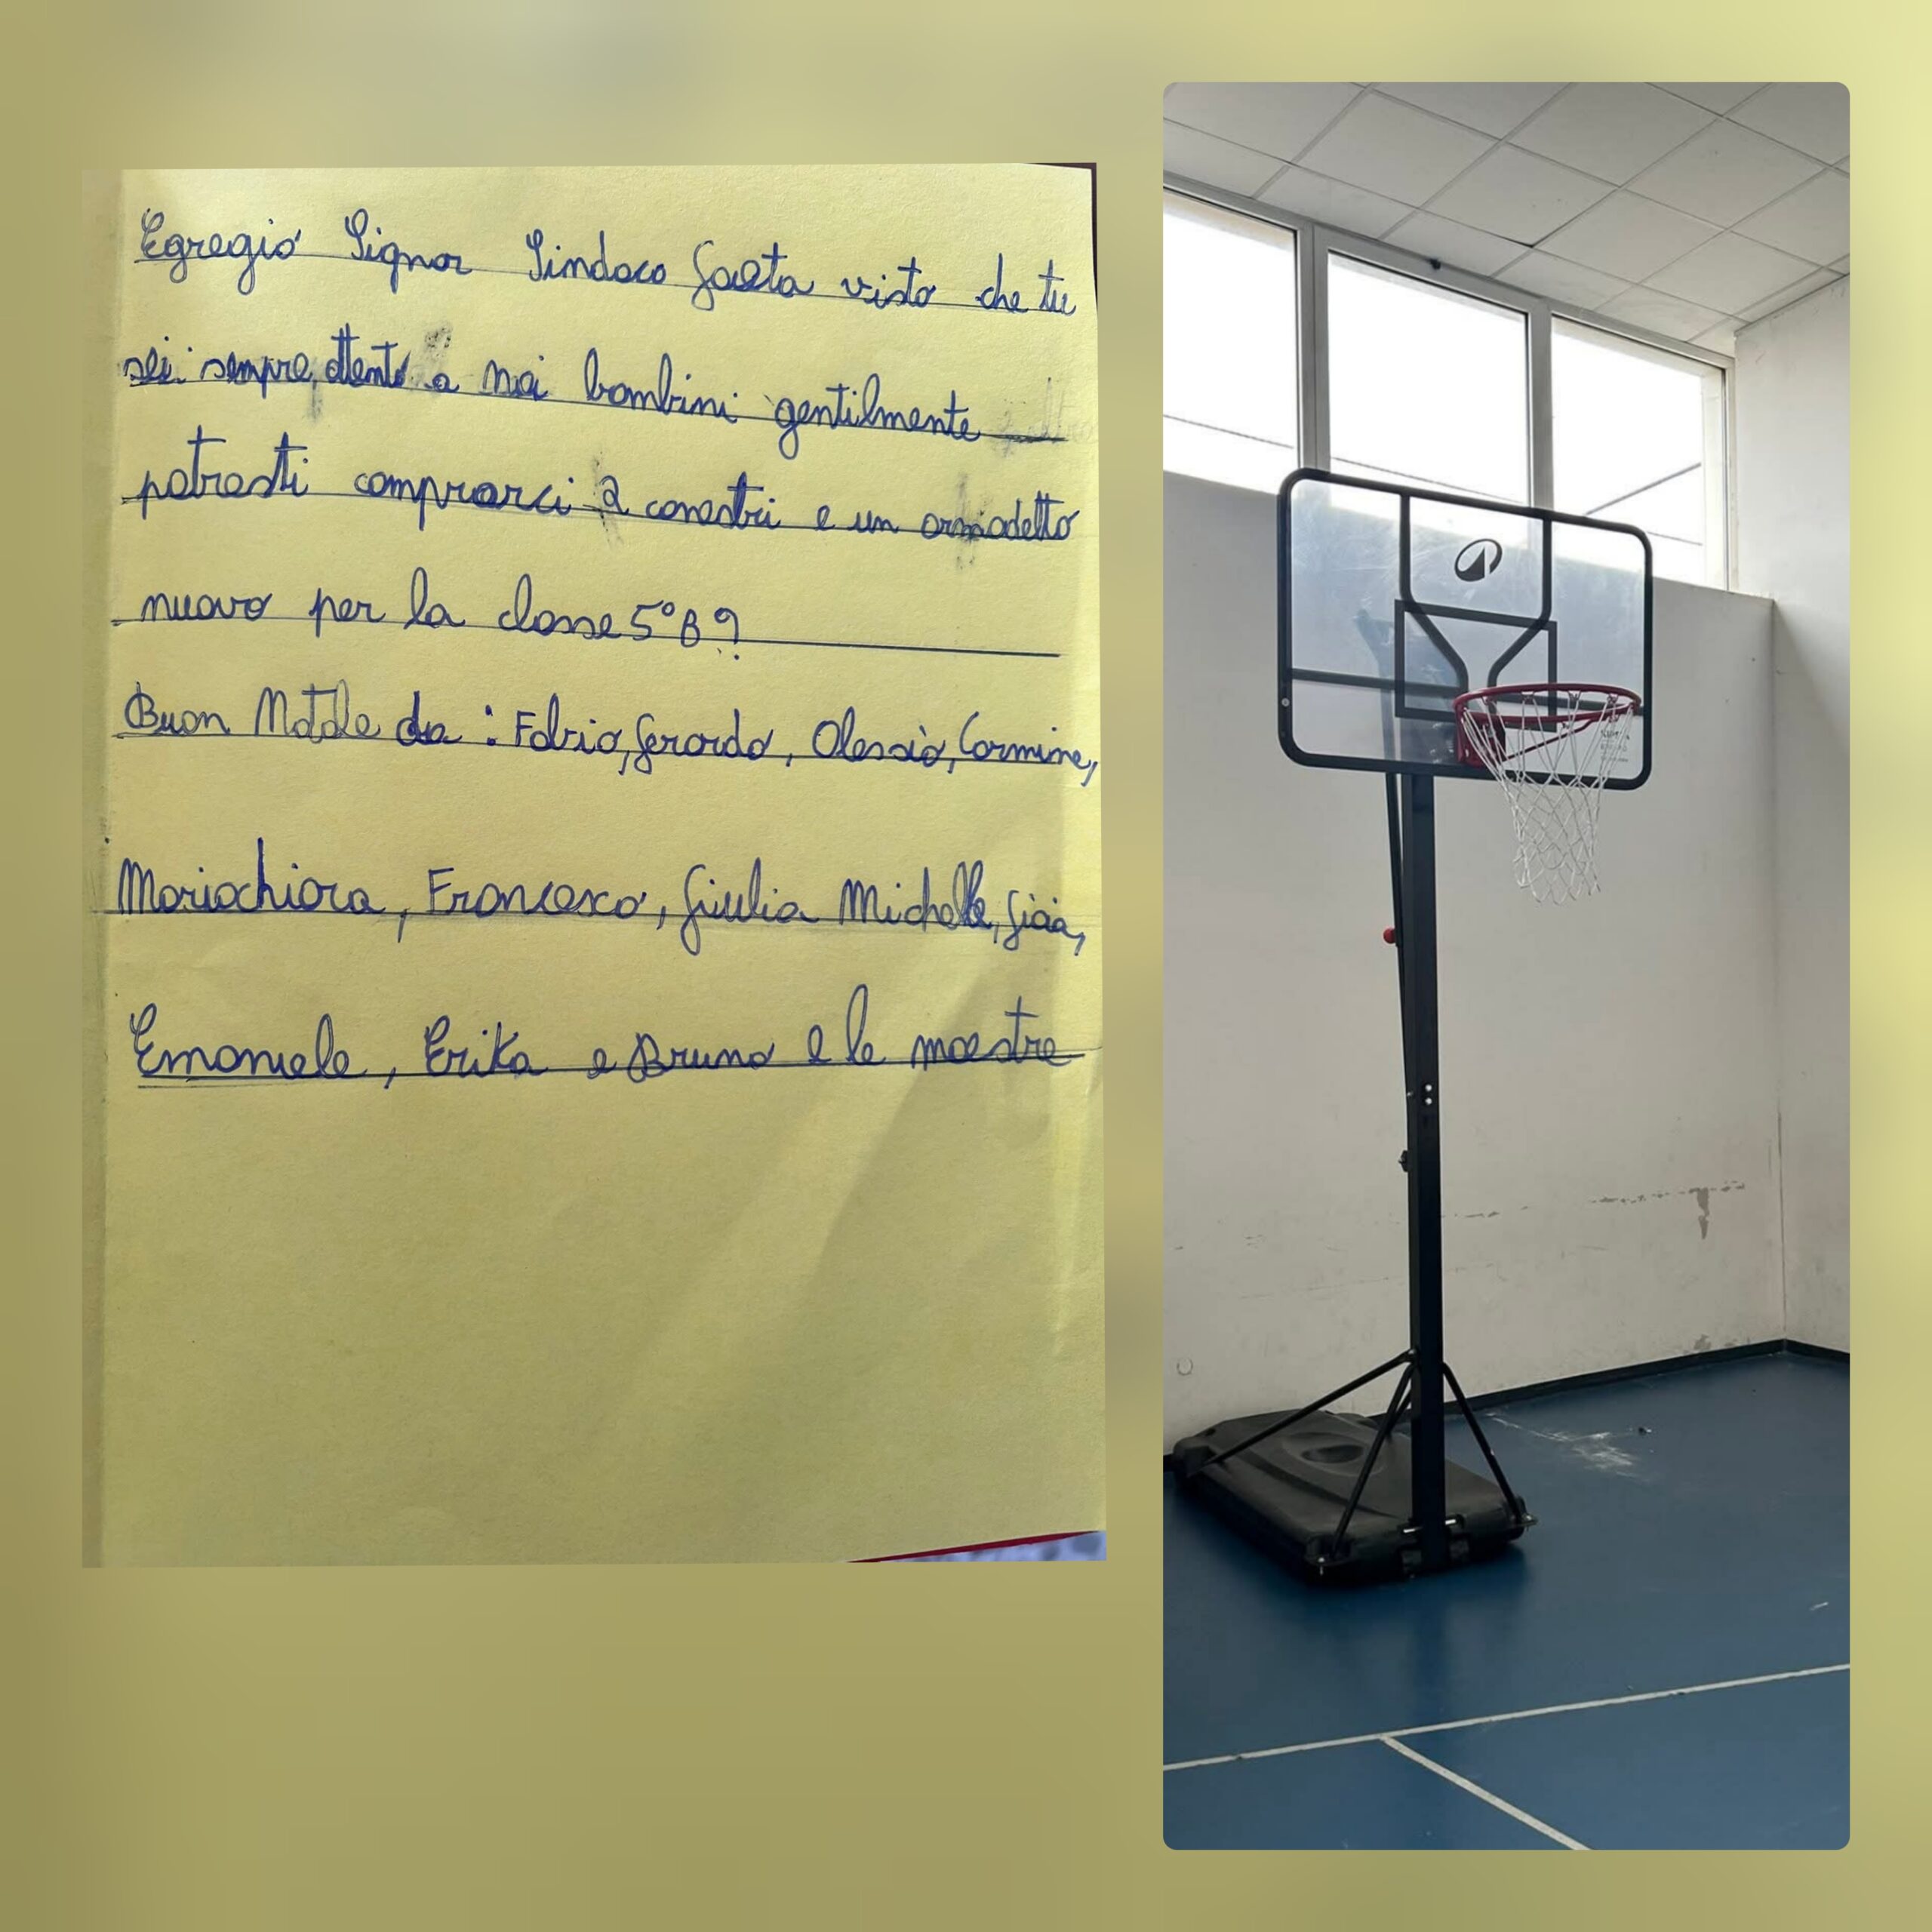 Egregio Signor Sindaco Gaeta visto che tu
sei sempre attento a noi bambini gentilmente
potresti comprarci 2 canestri e un armadetto
nuovo per la classe 5°B?
Buon Natale da: Fabio, Gerardo, Alessio, Carmine,
Mariachiara, Francesco, Giulia Michelle, Gioia,
Emanuele, Erika e Bruno e le maestre